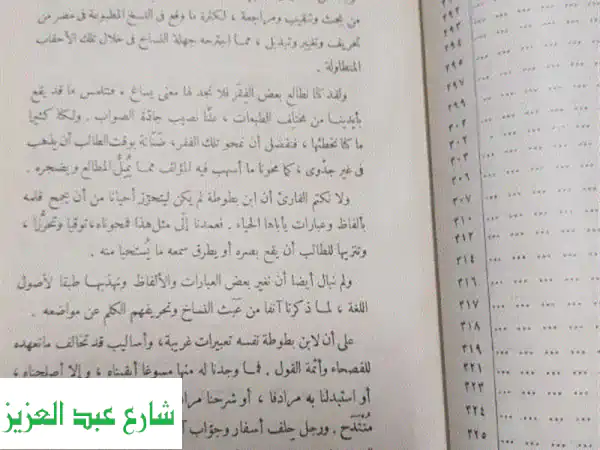 من بحث وتنقيب ومراجعة ، لكثرة ما وقع فى النسخ المطبوعة فى مصر من
تحريف وتغيير وتبديل ، مما اجترحه جهلة النساخ فى خلال تلك الأحقاب
المتطاولة .
ولقد كنا نطالع بعض الفقر فلا نجد لها معنى يساغ ، فنلتمس ما قد يقع
بأيدينا من مختلف الطبعات ، علّنا نصيب جادّة الصواب . ولكنا كثيرا
ما كنا نخطئها ، فنفضل أن نمحو تلك الفقر، ضنّانة بوقت الطالب أن يذهب
فى غير جدوى ، كما محونا ما أسهب فيه المؤلف مما يُمِلُّ المطالع ويضجره .
ولا نكتم القارئ أن ابن بطوطة لم يكن ليتحرّز أحيانا من أن يجمح قلمه
بألفاظ وعبارات يأباها الحياء . فعمدنا إلى مثل هذا فمحوناه، توقيا وتحرّزا ،
وتنزيها للطالب أن يقع بصره أو يطرق سمعه ما يُستحيا منه .
ولم نبال أيضا أن نغير بعض العبارات والألفاظ ونهذبها طبقا لأصول
اللغة ، لما ذكرنا آنفا من عَبَث النساخ وتحريفهم الكلم عن مواضعه .
على أن لابن بطوطة نفسه تعبيرات غريبة، وأساليب قد تخالف مانعهده
للفصحاء وأئمة القول . فما وجدنا له منها مسوغا أبقيناه ، وإلا أصلحناه ،
أو استبدلنا به مرادفا ، أو شرحنا
مُنْتَدَح . ورجل حِلف أسفار وجوّاب
شارع عبد العزيز
٢٩٣
٢٩٤
٢٩٥
٢٩٧
٢٩٩
٣٠٢
٣٠٢
٣٠٣
٣٠٦
٣٠٧
٣١٠
٣١٢
٣١٤
٣١٦
٣١٧
٣١٨
٣١٩
٣٢١
٣٢٣
٣٢٤
٣٢٥